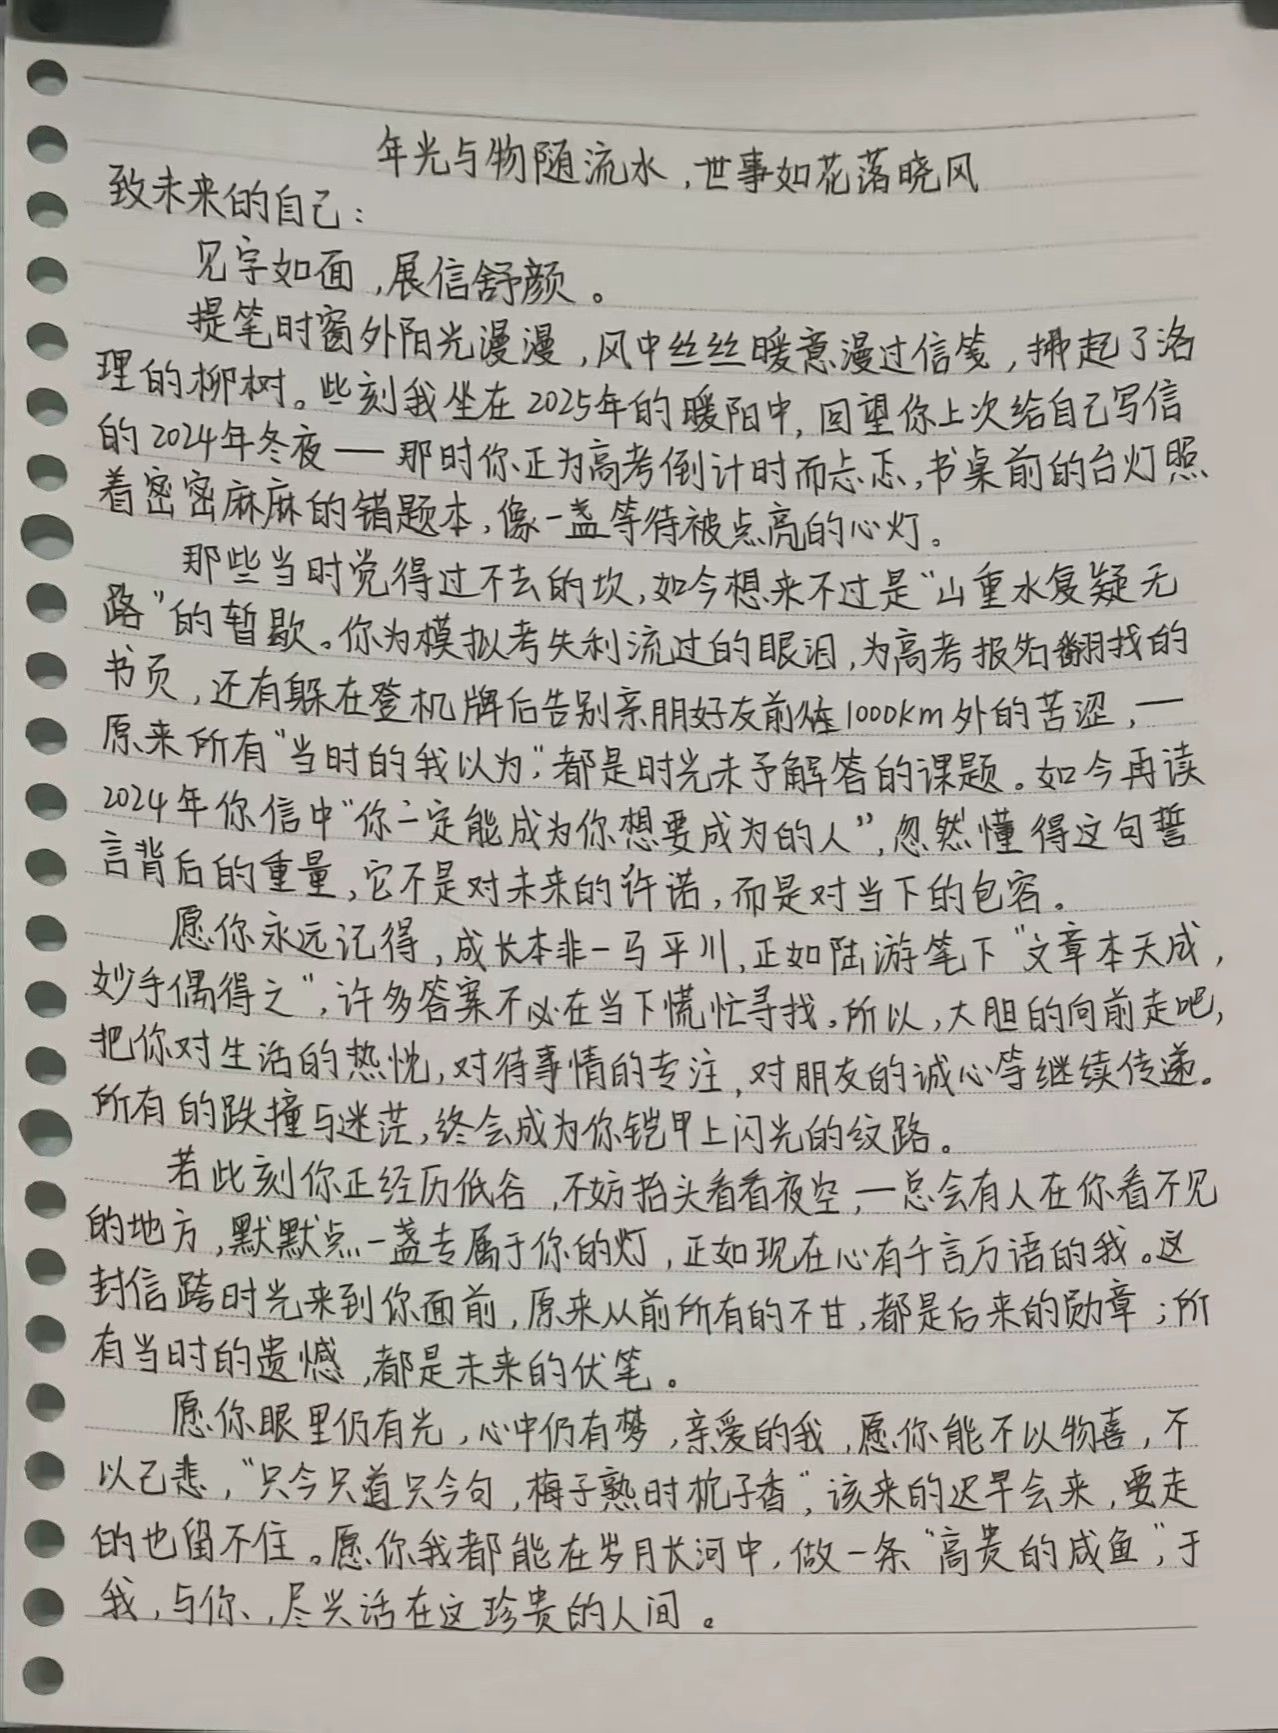 年光与物随流水，世事如花落晓风
致未来的自己：
见字如面，展信舒颜。
提笔时窗外阳光漫漫，风中丝丝暖意漫过信笺，拂起了洛
理的柳树。些刻我坐在2025年的暖阳中，回望你上次给自己写信
的2024年冬夜——那时你正为高考倒计时而忐忑，书桌前的台灯照
着密密麻麻的错题本，像一盏等待被点亮的心灯。
那些当时觉得过不去的坎，如今想来不过是“山重水复疑无
路”的暂歇。你为模拟考失利流过的眼泪，为高考报名翻找的
书页，还有躲在登机牌后告别亲朋好友前往1000km外的苦涩，——
原来所有“当时的我以为”，都是时光未予解答的课题。如今再读
2024年你信中“你一定能成为你想要成为的人”，忽然懂得这句誓
言背后的重量，它不是对未来的许诺，而是对当下的包容。
愿你永远记得，成长本非一马平川，正如陆游笔下“文章本天成，
妙手偶得之”，许多答案不必在当下慌忙寻找。所以，大胆的向前走吧，
把你对生活的热忱，对待事情的专注，对朋友的诚心等继续传递。
所有的跌撞与迷茫，终会成为你铠甲上闪光的纹路。
若此刻你正经历低谷，不妨抬头看看夜空，——总会有人在你看不见
的地方，默默点一盏专属于你的灯，正如现在心有千言万语的我。这
封信跨时光来到你面前，原来从前所有的不甘，都是后来的勋章；所
有当时的遗憾，都是未来的伏笔。
愿你眼里仍有光，心中仍有梦，亲爱的我，愿你能不以物喜，不
以己悲，“只今只道只今句，梅子熟时栀子香”，该来的迟早会来，要走
的也留不住。愿你我都能在岁月长河中，做一条“高贵的咸鱼”，于
我，与你，尽兴活在这珍贵的人间。